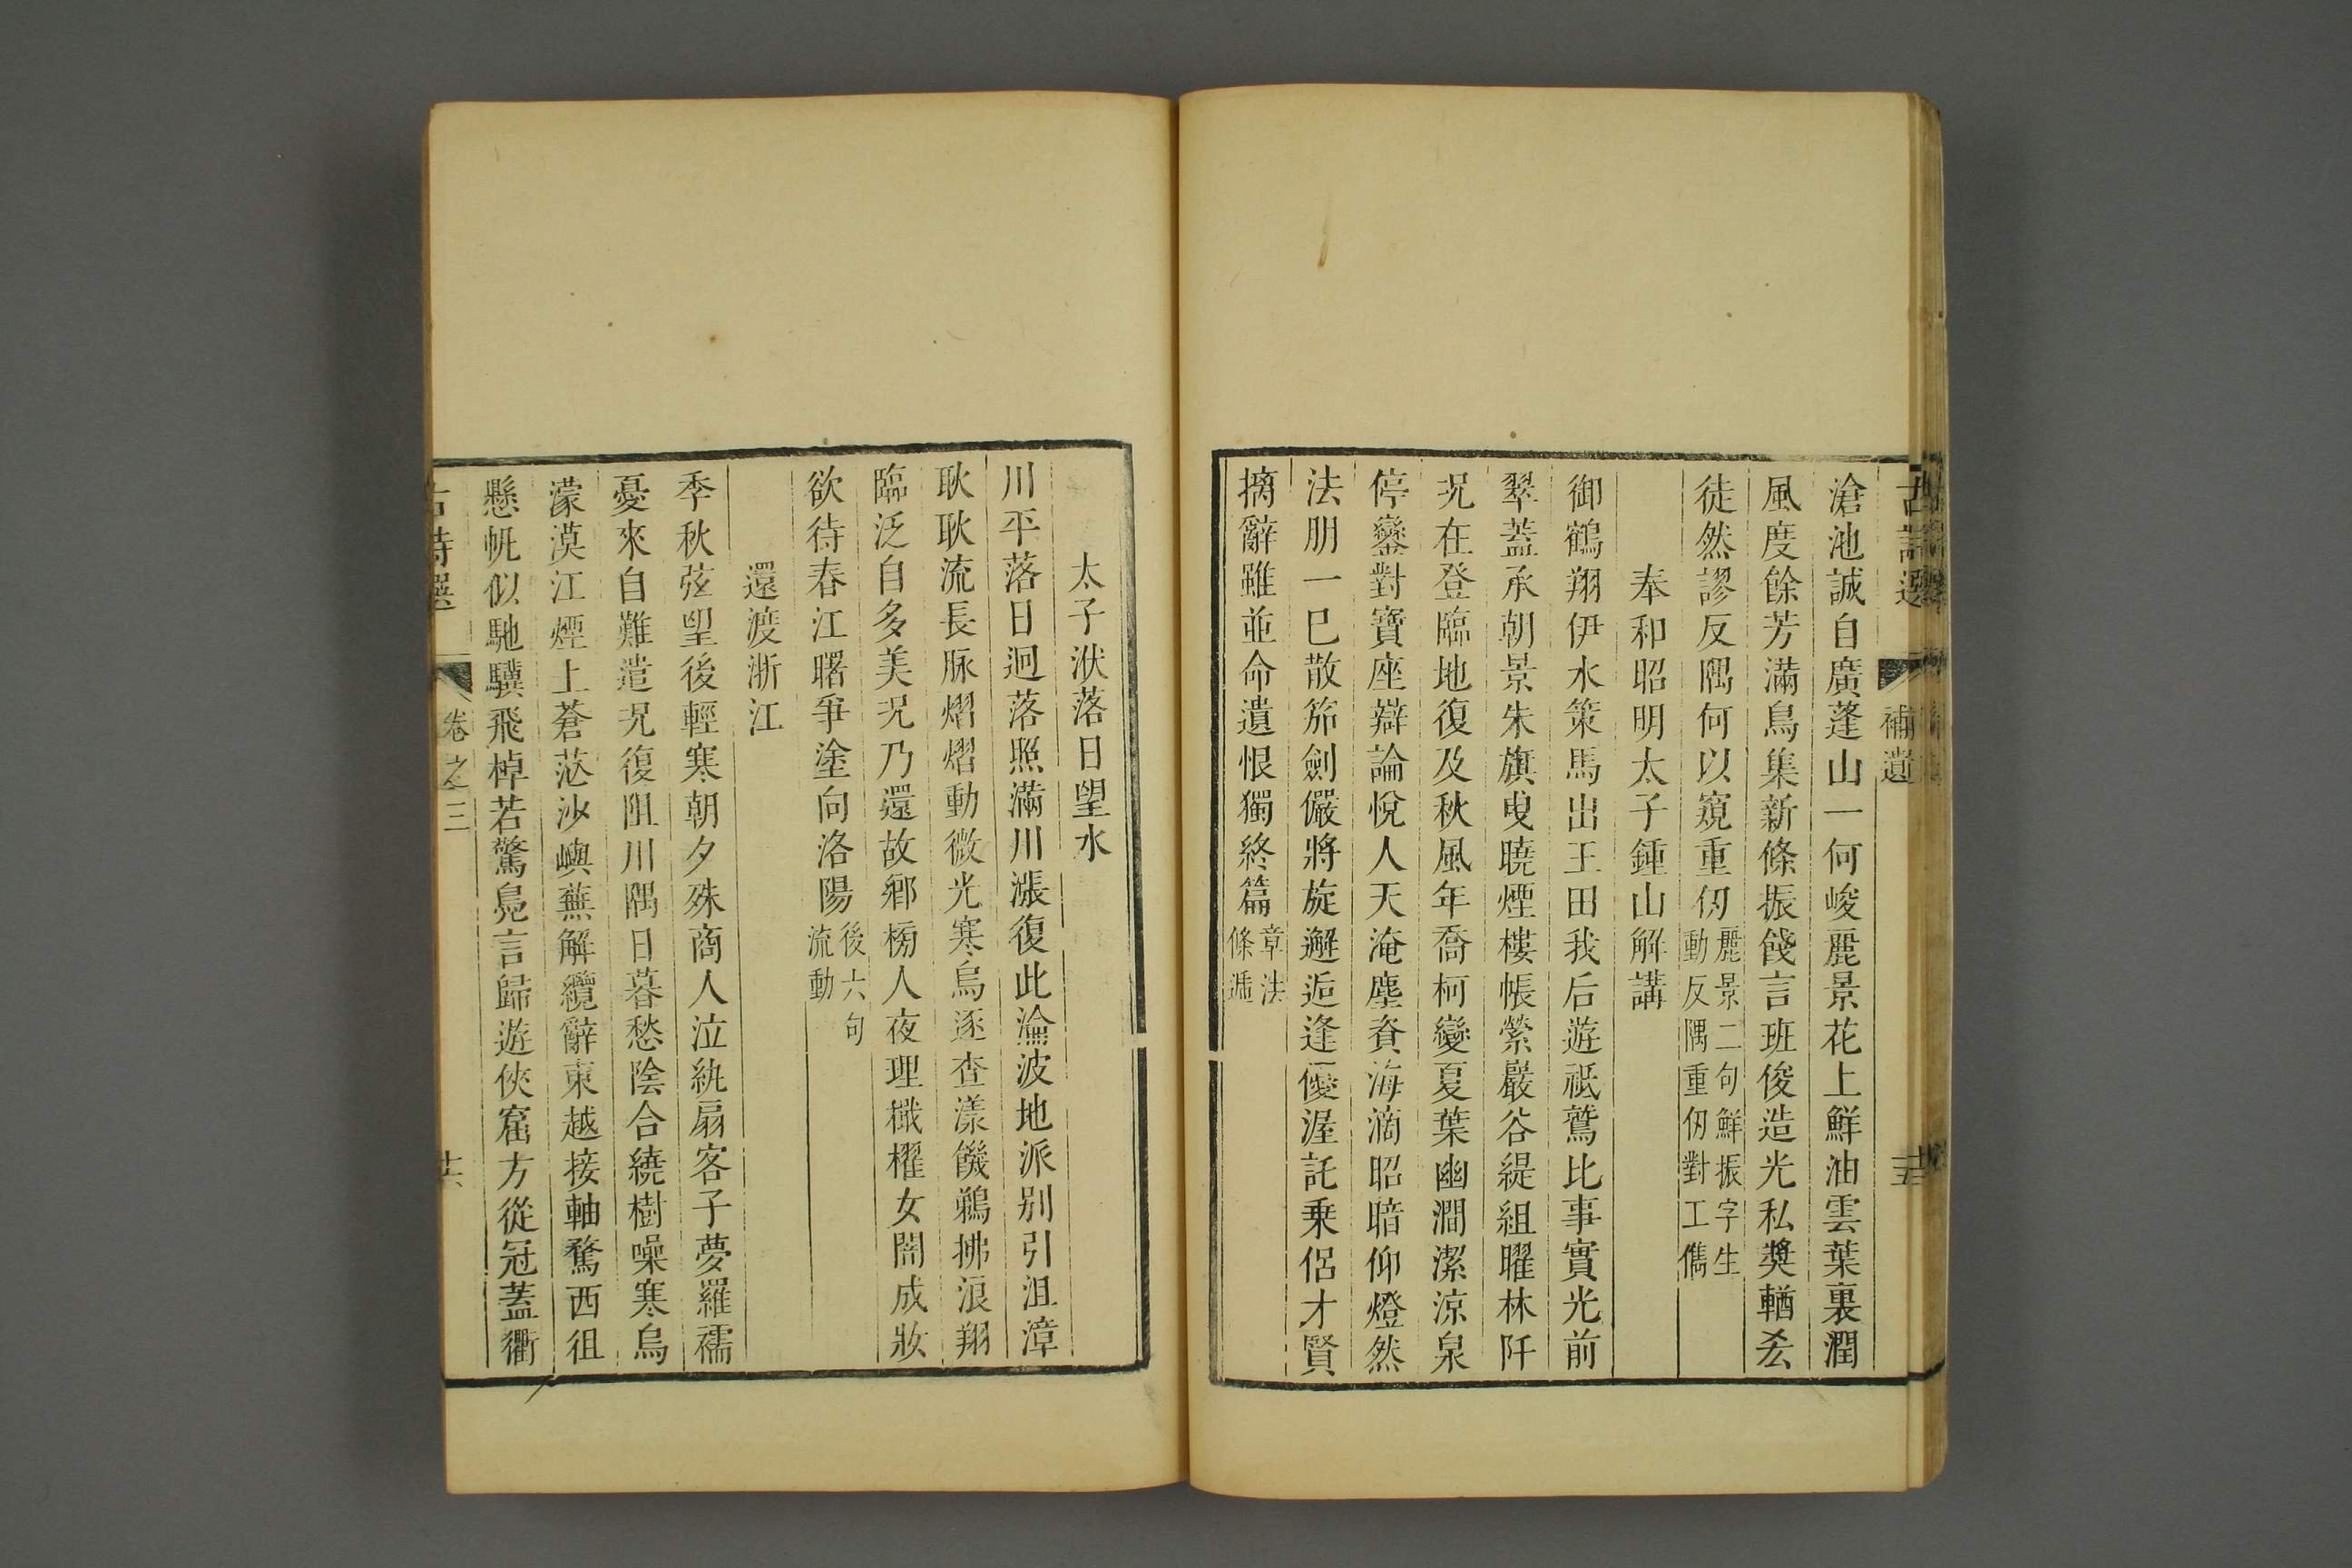 古詩選 補遺 十五
滄池誠自廣蓬山一何峻麗景花上鮮油雲葉裏潤
風度餘芳滿鳥集新條振餞言班俊造光私獎輶𠫤
徒然謬反隅何以窺重仞麗景二句鮮振字生動反隅重仞對工儁
奉和昭明太子鍾山解講
御鶴翔伊水策馬出王田我后遊祗鷲比事實光前
翠蓋承朝景朱旗曳曉煙樓帳縈巖谷緹組曜林阡
况在登臨地復及秋風年喬柯變夏葉幽澗潔涼泉
停鑾對寶座辯論悅人天淹塵資海滴昭暗仰燈然
法朋一巳散笳劍儼將旋邂逅逢優渥託乗侶才賢
摛辭雖並命遺恨獨終篇章法條遞
太子洑落日望水
川平落日迥落照滿川漲復此淪波地派别引沮漳
耿耿流長脉熠熠動微光寒烏逐查漾饑鵜拂浪翔
臨泛自多美况乃還故鄉榜人夜理檝櫂女闇成妝
欲待春江曙爭塗向洛陽後六句流動
還渡浙江
季秋弦望後輕寒朝夕殊商人泣紈扇客子夢羅襦
憂來自難遣况復阻川隅日暮愁陰合繞樹噪寒烏
濛漠江煙上蒼茫沙嶼蕪解纜辭東越接軸騖西徂
懸帆似馳驥飛棹若驚鳧言歸遊俠窟方從冠蓋衢
古詩選 卷之三 十六